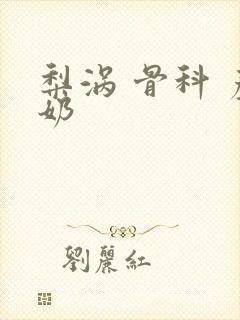 梨涡 骨科
奶
劉麗紅